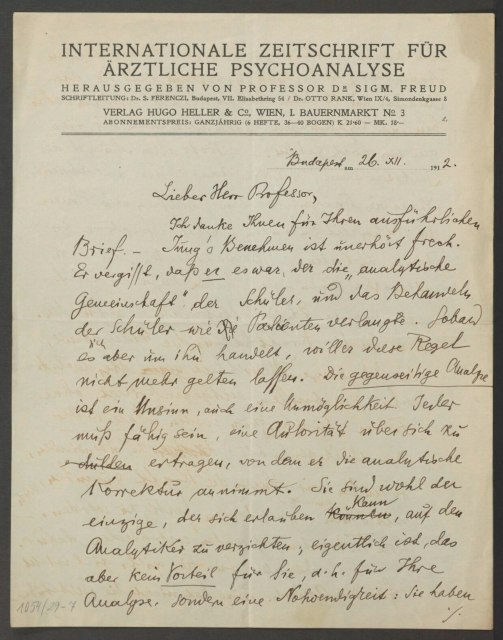 INTERNATIONALE ZEITSCHRIFT FÜR
ÄRZTLICHE PSYCHOANALYSE
HERAUSGEGEBEN VON PROFESSOR DR SIGM. FREUD
SCHRIFTLEITUNG: DR. S. FERENCZI, Budapest, VII. Elisabethring 54 / DR. OTTO RANK, Wien IX/4, Simondenkgasse 8
VERLAG HUGO HELLER & Co, WIEN, I. BAUERNMARKT No 3
ABONNEMENTSPREIS: GANZJÄHRIG (6 HEFTE, 36–40 BOGEN) K 21·60 — MK. 18·—
Budapest am 26. XII. 1912.
Lieber Herr Professor,
Ich danke Ihnen für Ihren ausführlichen
Brief. – Jung's Benehmen ist unerhört frech.
Er vergißt, daß er es war, der die „analytische
Gemeinschaft" der Schüler, und das Behandeln
der Schüler wie Patienten verlangte. Sobald
es sich aber um ihn handelt, will er diese Regel
nicht mehr gelten lassen. Die gegenseitige Analyse
ist ein Unsinn, auch eine Unmöglichkeit. Jeder
muß fähig sein, eine Autorität über sich zu
dulden ertragen, von dem er die analytische
Korrektur annimmt. Sie sind wohl der
einzige, der sich erlauben können kann, auf den
Analytiker zu verzichten; eigentlich ist das
aber kein Vorteil für Sie, d. h. für Ihre
Analyse, sondern eine Notwendigkeit: Sie haben
./.
1054/19-7